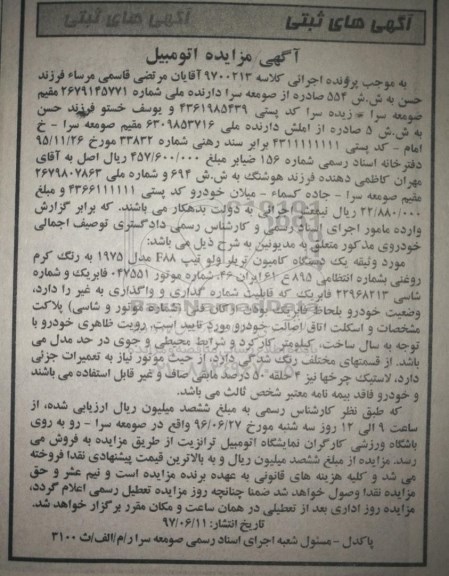 آگهی های ثبتی
آگهی های ثبتی
آگهی مزایده اتومبیل
به موجب پرونده اجرائی کلاسه ۹۷۰۰۲۱۳ آقایان مرتضی قاسمی مرساء فرزند
حسن به ش.ش ۵۵۴ صادره از صومعه سرا دارنده ملی شماره ۲۶۷۹۱۴۵۷۷۱ مقیم
صومعه سرا - زیده سرا کد پستی ۴۳۶۱۹۸۵۴۳۹ و یوسف خستو فرزند حسن
به ش.ش ۵ صادره از املش دارنده ملی ۶۳۰۹۸۵۳۷۱۶ مقیم صومعه سرا - خ
امام - کد پستی ۴۳۱۱۱۱۱۱۱۱ برابر سند رهنی شماره ۳۳۸۳۲ مورخ ۹۵/۱۱/۲۶
دفترخانه اسناد رسمی شماره ۱۵۶ ضیابر مبلغ ۴۵۷/۶۰۰/۰۰۰ ریال اصل به آقای
مهران کاظمی دهنده فرزند هوشنگ به ش.ش ۶۹۴ و شماره ملی ۲۶۷۹۸۰۷۸۶۳
مقیم صومعه سرا - جاده کسماء - میلان خودرو کد پستی ۴۳۶۶۱۱۱۱۱۱ و مبلغ
۲۲/۸۸۰/۰۰۰ ریال نیمعشر اجرائی به دولت بدهکار می باشند. که برابر گزارش
وارده مامور اجرای اسناد رسمی و کارشناس رسمی دادگستری توصیف اجمالی
خودروی مذکور متعلق به مدیونین به شرح ذیل می باشد:
مورد وثیقه یک دستگاه کامیون تریلر ولو تیپ F۸۸ مدل ۱۹۷۵ به رنگ کرم
روغنی بشماره انتظامی ۸۹۵ع ۶۱ ایران ۴۶، شماره موتور ۰۴۷۵۵۱ فابریک و شماره
شاسی ۲۲۹۶۸۲۱۳ فابریک که قابلیت شماره گذاری و واگذاری به غیر را دارد،
وضعیت خودرو بلحاظ فابریک بودن ارکان فنی (شماره موتور و شاسی) پلاکت
مشخصات و اسکلت اتاق اصالت خودرو مورد تایید است، رویت ظاهری خودرو با
توجه به سال ساخت، کیلومتر کارکرد و شرایط محیطی و جوی در حد مدل می
باشد. از قسمتهای مختلف رنگ شدگی دارد، از حیث موتور نیاز به تعمیرات جزئی
دارد، لاستیک چرخها نیز ۴ حلقه ۵۰ درصد مابقی صاف و غیر قابل استفاده می باشند
و خودرو فاقد بیمه نامه معتبر شخص ثالث می باشد.
که طبق نظر کارشناس رسمی به مبلغ ششصد میلیون ریال ارزیابی شده، از
ساعت ۹ الی ۱۲ روز سه شنبه مورخ ۹۶/۰۶/۲۷ واقع در صومعه سرا - رو به روی
باشگاه ورزشی کارگران نمایشگاه اتومبیل ترانزیت از طریق مزایده به فروش می
رسد. مزایده از مبلغ ششصد میلیون ریال و به بالاترین قیمت پیشنهادی نقدا فروخته
می شد و کلیه هزینه های قانونی به عهده برنده مزایده است و نیم عشر و حق
مزایده نقدا وصول خواهد شد ضمنا چنانچه روز مزایده تعطیل رسمی اعلام گردد،
مزایده روز اداری بعد از تعطیلی در همان ساعت و مکان مقرر برگزار خواهد شد.
تاریخ انتشار: ۹۷/۰۶/۱۱
پاکدل - مسئول شعبه اجرای اسناد رسمی صومعه سرا ر/م/الف/ث ۳۱۰۰